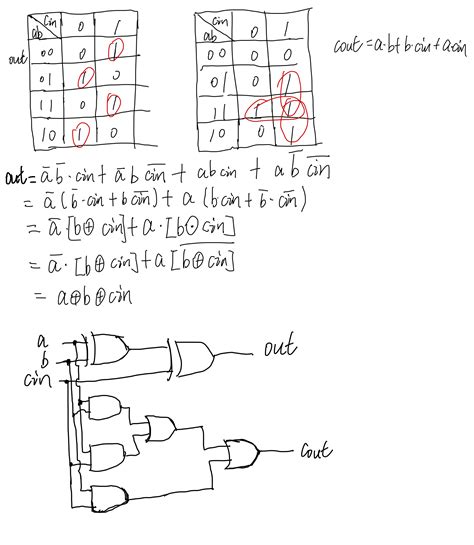 cin 0 1
ab
out 00 0 1
01 1 0
11 0 1
10 1 0
cin 0 1
ab
00 0 0
01 0 1
11 1 1
10 0 1
cout = a·b+b·cin+a·cin
out = a̅b̅·cin + a̅bc̅i̅n̅ + abcin + ab̅ c̅i̅n̅
= a̅(b̅·cin+bc̅i̅n̅) + a(bcin+b̅·c̅i̅n̅)
= a̅·[b⊕cin]+a·[b⊙cin]
= a̅·[b⊕cin]+a[b̅⊕̅c̅i̅n̅]
= a⊕b⊕cin
a
b
cin
out
cout